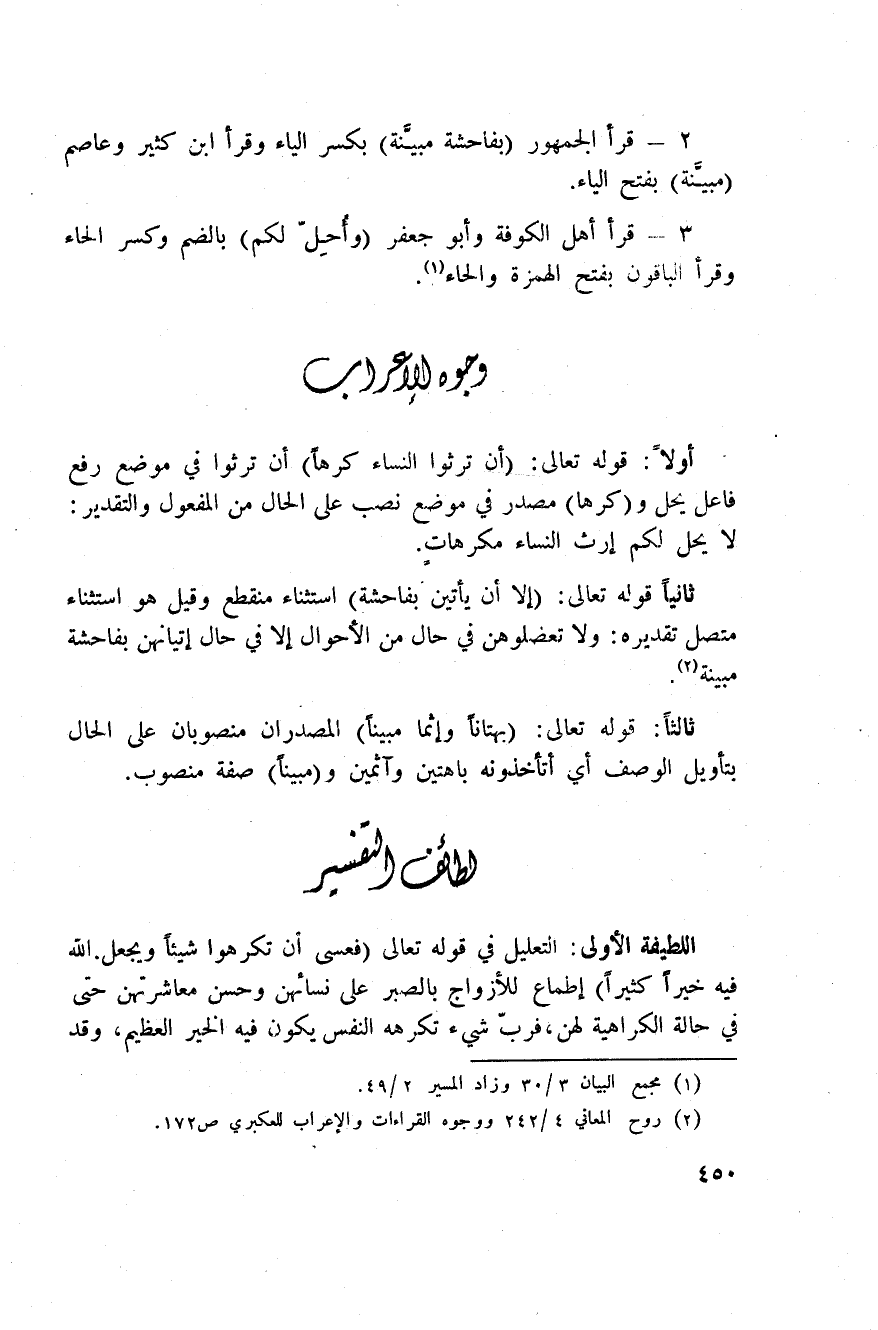 ٢ — قرأ الجمهور (بفاحشة مبيَّنة) بكسر الياء وقرأ ابن كثير وعاصم
(مبيَّنة) بفتح الياء.
٣ — قرأ أهل الكوفة وأبو جعفر (وأُحيلّ لكم) بالضم وكسر الحاء
وقرأ الباقون بفتح الهمزة والحاء(١).
وجوه الإعراب
أولاً: قوله تعالى: (أن ترثوا النساء كرهاً) أن ترثوا في موضع رفع
فاعل يحل و(كرها) مصدر في موضع نصب على الحال من المفعول والتقدير:
لا يحل لكم إرث النساء مكرهاتٍ.
ثانياً قوله تعالى: (إلا أن يأتين بفاحشة) استثناء منقطع وقيل هو استثناء
متصل تقديره: ولا تعضلوهن في حال من الأحوال إلا في حال إتيانهن بفاحشة
مبينة(٢).
ثالثاً: قوله تعالى: (بهتاناً وإثما مبيناً) المصدران منصوبان على الحال
بتأويل الوصف أي أتأخذونه باهتين وآثمين و(مبيناً) صفة منصوب.
لطائف التفسير
اللطيفة الأولى: التعليل في قوله تعالى (فعسى أن تكرهوا شيئاً ويجعل.الله
فيه خيراً كثيراً) إطماع للأزواج بالصبر على نسائهن وحسن معاشرتهن حتى
في حالة الكراهية لهن، فربّ شيء تكرهه النفس يكون فيه الخير العظيم، وقد
(١) مجمع البيان ٣/٣٠ وزاد المسير ٤٩/٢.
(٢) روح المعاني ٢٤٢/٤ ووجوه القراءات والإعراب للعكبري ص١٧٢.
٤٥٠